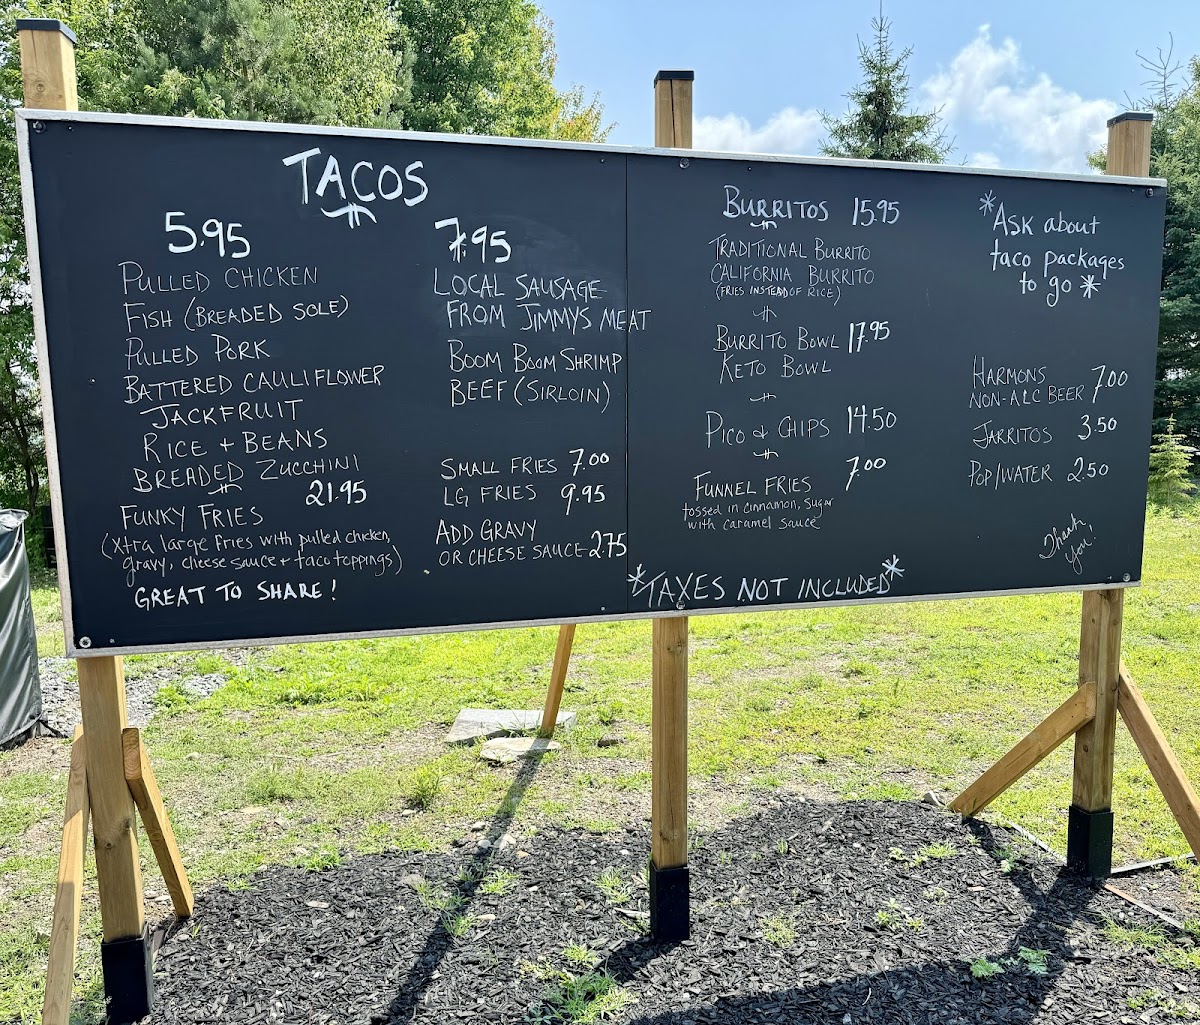 TACOS
5.95
PULLED CHICKEN
FISH (BREADED SOLE)
PULLED PORK
BATTERED CAULIFLOWER
JACKFRUIT
RICE + BEANS
BREADED ZUCCHINI
21.95
FUNKY FRIES
(xtra large fries with pulled chicken,
gravy, cheese sauce + taco toppings)
GREAT TO SHARE!
7.95
LOCAL SAUSAGE
FROM JIMMYS MEAT
BOOM BOOM SHRIMP
BEEF (SIRLOIN)
SMALL FRIES 7.00
LG FRIES 9.95
ADD GRAVY
OR CHEESE SAUCE - 2.75
BURRITOS 15.95
TRADITIONAL BURRITO
CALIFORNIA BURRITO
(FRIES INSTEAD OF RICE)
BURRITO BOWL 17.95
KETO BOWL
PICO & CHIPS 14.50
FUNNEL FRIES 7.00
tossed in cinnamon, sugar
with caramel sauce
*TAXES NOT INCLUDED*
*ASK about
taco packages
to go*
HARMONS
NON-ALC BEER 7.00
JARRITOS 3.50
POP/WATER 2.50
Thank
you!